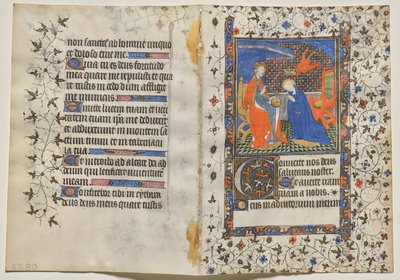 non sancta ab homine iniquo
et doloso erue me.
Quia tu es deus fortitudo
mea quare me repulisti et qua
re tristis incedo dum affligit
me inimicus.
Emitte lucem tuam et veri
tatem tuam ipa me deduxerunt
et adduxerunt in montem sa
tuum et in tabernacu
la tua.
Et introibo ad altare dei ad
deum qui letificat iuventute
meam.
Confitebor tibi in cythara
deus deus meus quare tristis
Converte nos deus
salutaris noster.
Et averte iram
tuam a nobis.
Deus in adiutorium meum
55.80